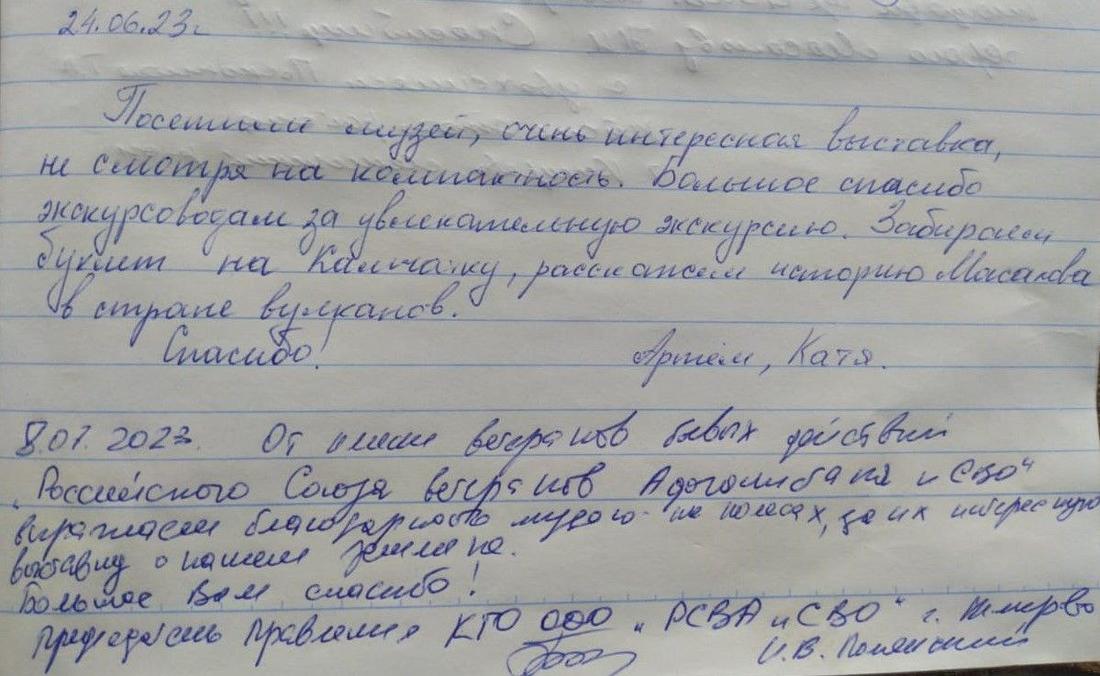 24.06.23г
Посетили музей, очень интересная выставка,
не смотря на компактность. Большое спасибо
экскурсоводам за увлекательную экскурсию. Забираем
буклет на Камчатку, расскажем историю Масалова
в стране вулканов.
Спасибо! Артём, Катя.
8.07.2023. От имени ветеранов боевых действий
"Российского Союза ветеранов Афганистана и СВО"
выражаем благодарность музею на колесах, за их интересную
выставку о нашем земляке.
Большое Вам спасибо!
Председатель Правления КТО ООО "РСВА и СВО" г.
И.В.